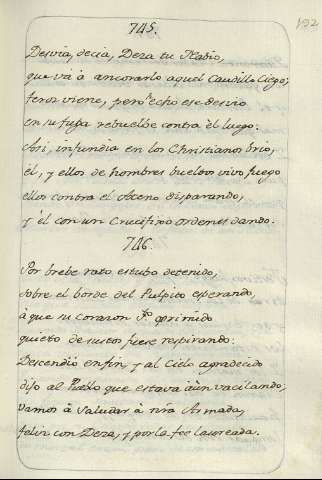 192
745.
Desvia, decia, Deza tu Navio,
que vá à ancorarlo aquel Caudillo Ciego;
feros viene, pero echo ese desvio
en su fuga rebuelbe contra èl luego:
Asi, infundia en los Christianos brio,
èl, y ellos de hombres bueltos vivo fuego
ellos contra el Aceno disparando,
y èl con un Crucifixo ordenes dando.
746.
Por brebe rato estubo detenido,
sobre el borde del Pulpito esperando,
à que su corazon oprimido
quieto de sustos fuese respirando:
Descendiò enfin, y al Cielo agradecido
dijo al Pueblo que estava aùn vacilando;
vamos à saludar à nrâ Armada,
felix con Deza, y por la fee laureada.